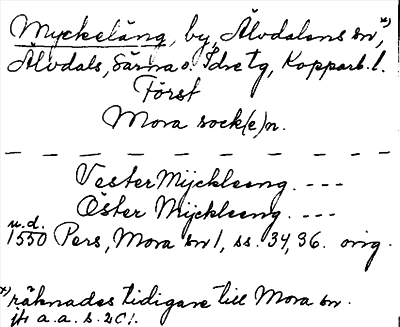 Myckeläng, by, Älvdalens sn,*)
Älvdals, Särna o. Idre tg, Kopparb. l.
Först
Mora sock(e)n.
Vester Mijckleeng. ---
Öster Mijckleeng. ---
u.d.
1550 Pers, Mora sn 1, ss. 34, 36. orig.
*) räknades tidigare till Mora sn.
jfr a.a. s. 20.